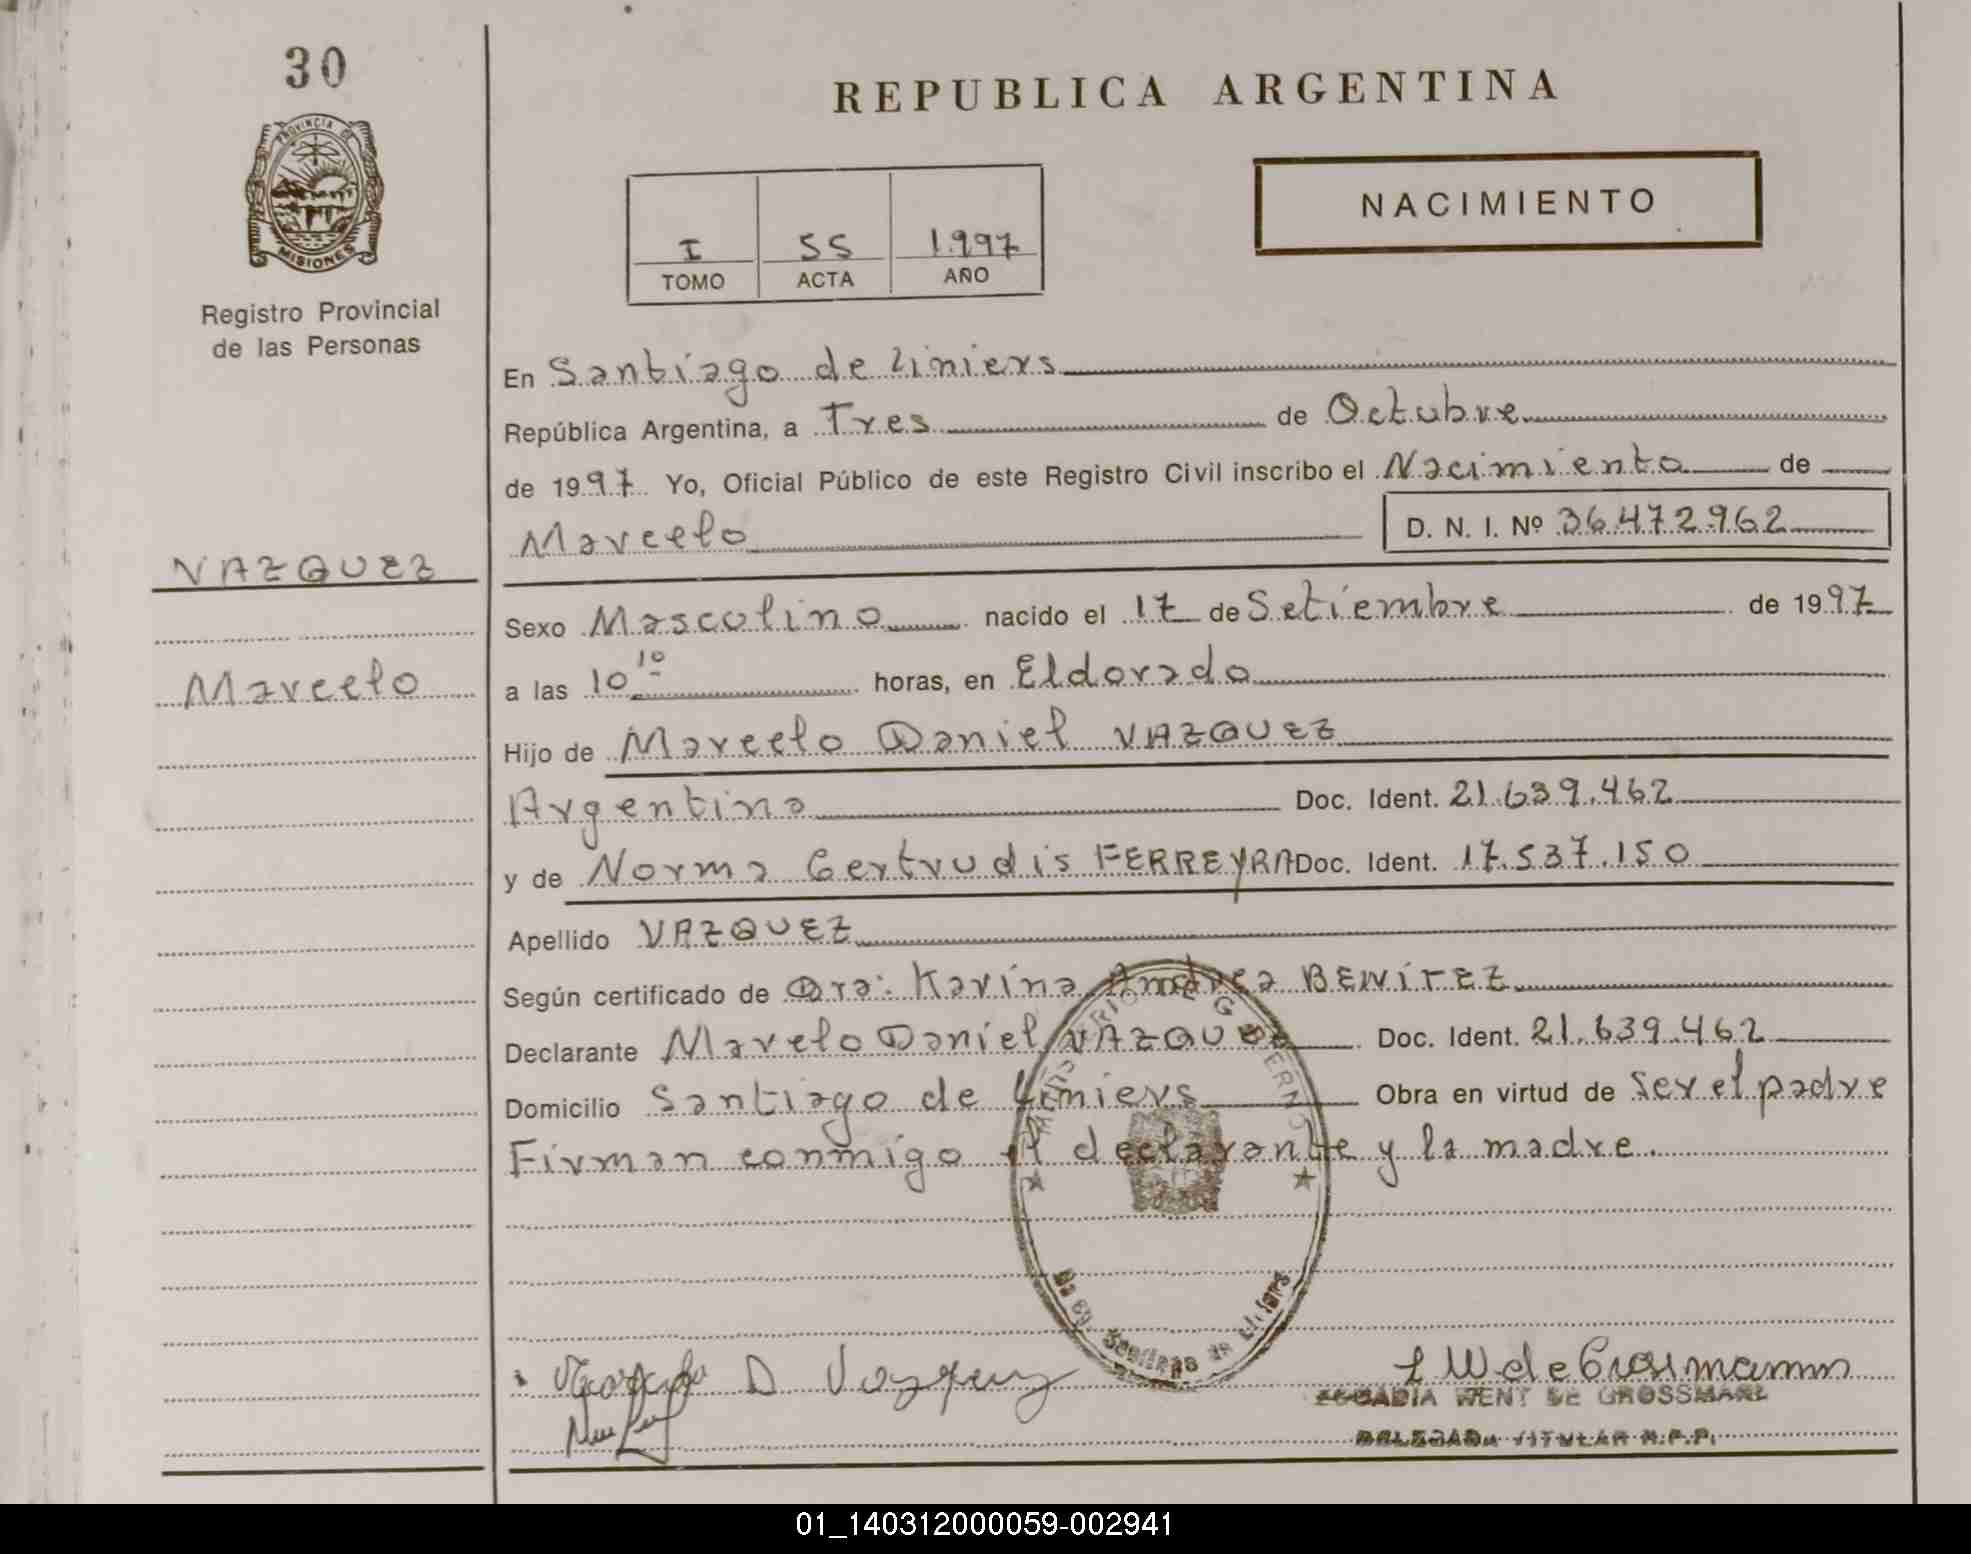 30
REPUBLICA ARGENTINA
PROVINCIA DE
MISIONES
NACIMIENTO
I 55 1.997
TOMO ACTA AÑO
Registro Provincial
de las Personas
En Santiago de Liniers
República Argentina, a Tres de Octubre
de 1997 Yo, Oficial Público de este Registro Civil inscribo el Nacimiento de
Marcelo D. N. I. Nº 36.472.962
VAZQUEZ
Marcelo
Sexo Masculino nacido el 17 de Setiembre de 1997
a las 10 10 horas, en Eldorado
Hijo de Marcelo Daniel VAZQUEZ
Argentino Doc. Ident. 21.639.462
y de Norma Gertrudis FERREYRA Doc. Ident. 17.537.150
Apellido VAZQUEZ
Según certificado de Dra: Karina Andrea BENITEZ
Declarante Marcelo Daniel VAZQUEZ Doc. Ident. 21.639.462
Domicilio Santiago de Liniers Obra en virtud de ser el padre
Firman conmigo el declarante y la madre.
D Vazquez
WENT DE GROSSMANN
DELEGADA TITULAR R.P.P.
01_140312000059-002941